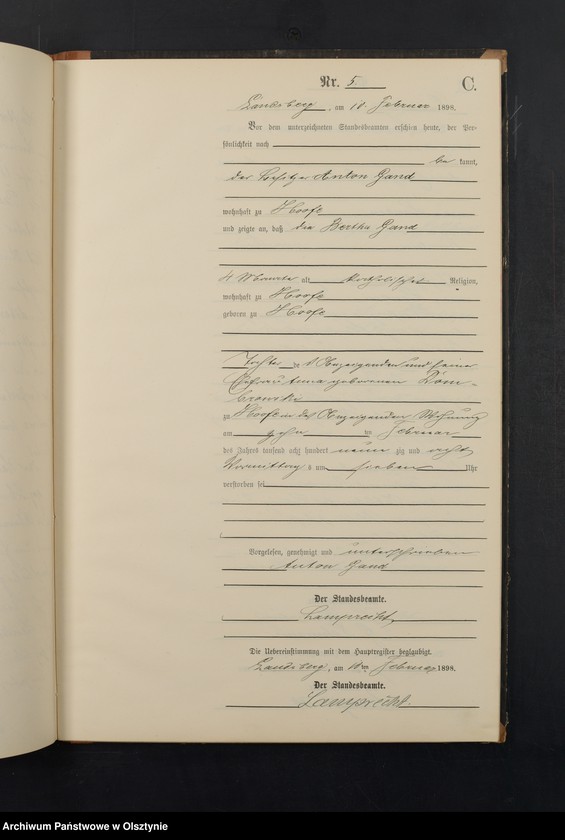 Nr. 5. C.
Landsberg, am 10. Februar 1898.
Vor dem unterzeichneten Standesbeamten erschien heute, der Per-
sönlichkeit nach
be kannt,
der Besitzer Anton Gand
wohnhaft zu Hoofe
und zeigte an, daß die Bertha Gand
4 Monate alt katholischer Religion,
wohnhaft zu Hoofe
geboren zu Hoofe
Tochter des Anzeigenden und seiner
Ehefrau Anna geborenen Dom-
browski
zu Hoofe in des Anzeigenden Wohnung
am zehn ten Februar
des Jahres tausend acht hundert neun zig und acht
Vormittag s um sieben Uhr
verstorben sei
Vorgelesen, genehmigt und unterschrieben
Anton Gand
Der Standesbeamte.
Lamprecht
Die Uebereinstimmung mit dem Hauptregister beglaubigt.
Landsberg, am 10 ten Februar 1898.
Der Standesbeamte.
Lamprecht.
Archiwum Państwowe w Olsztynie